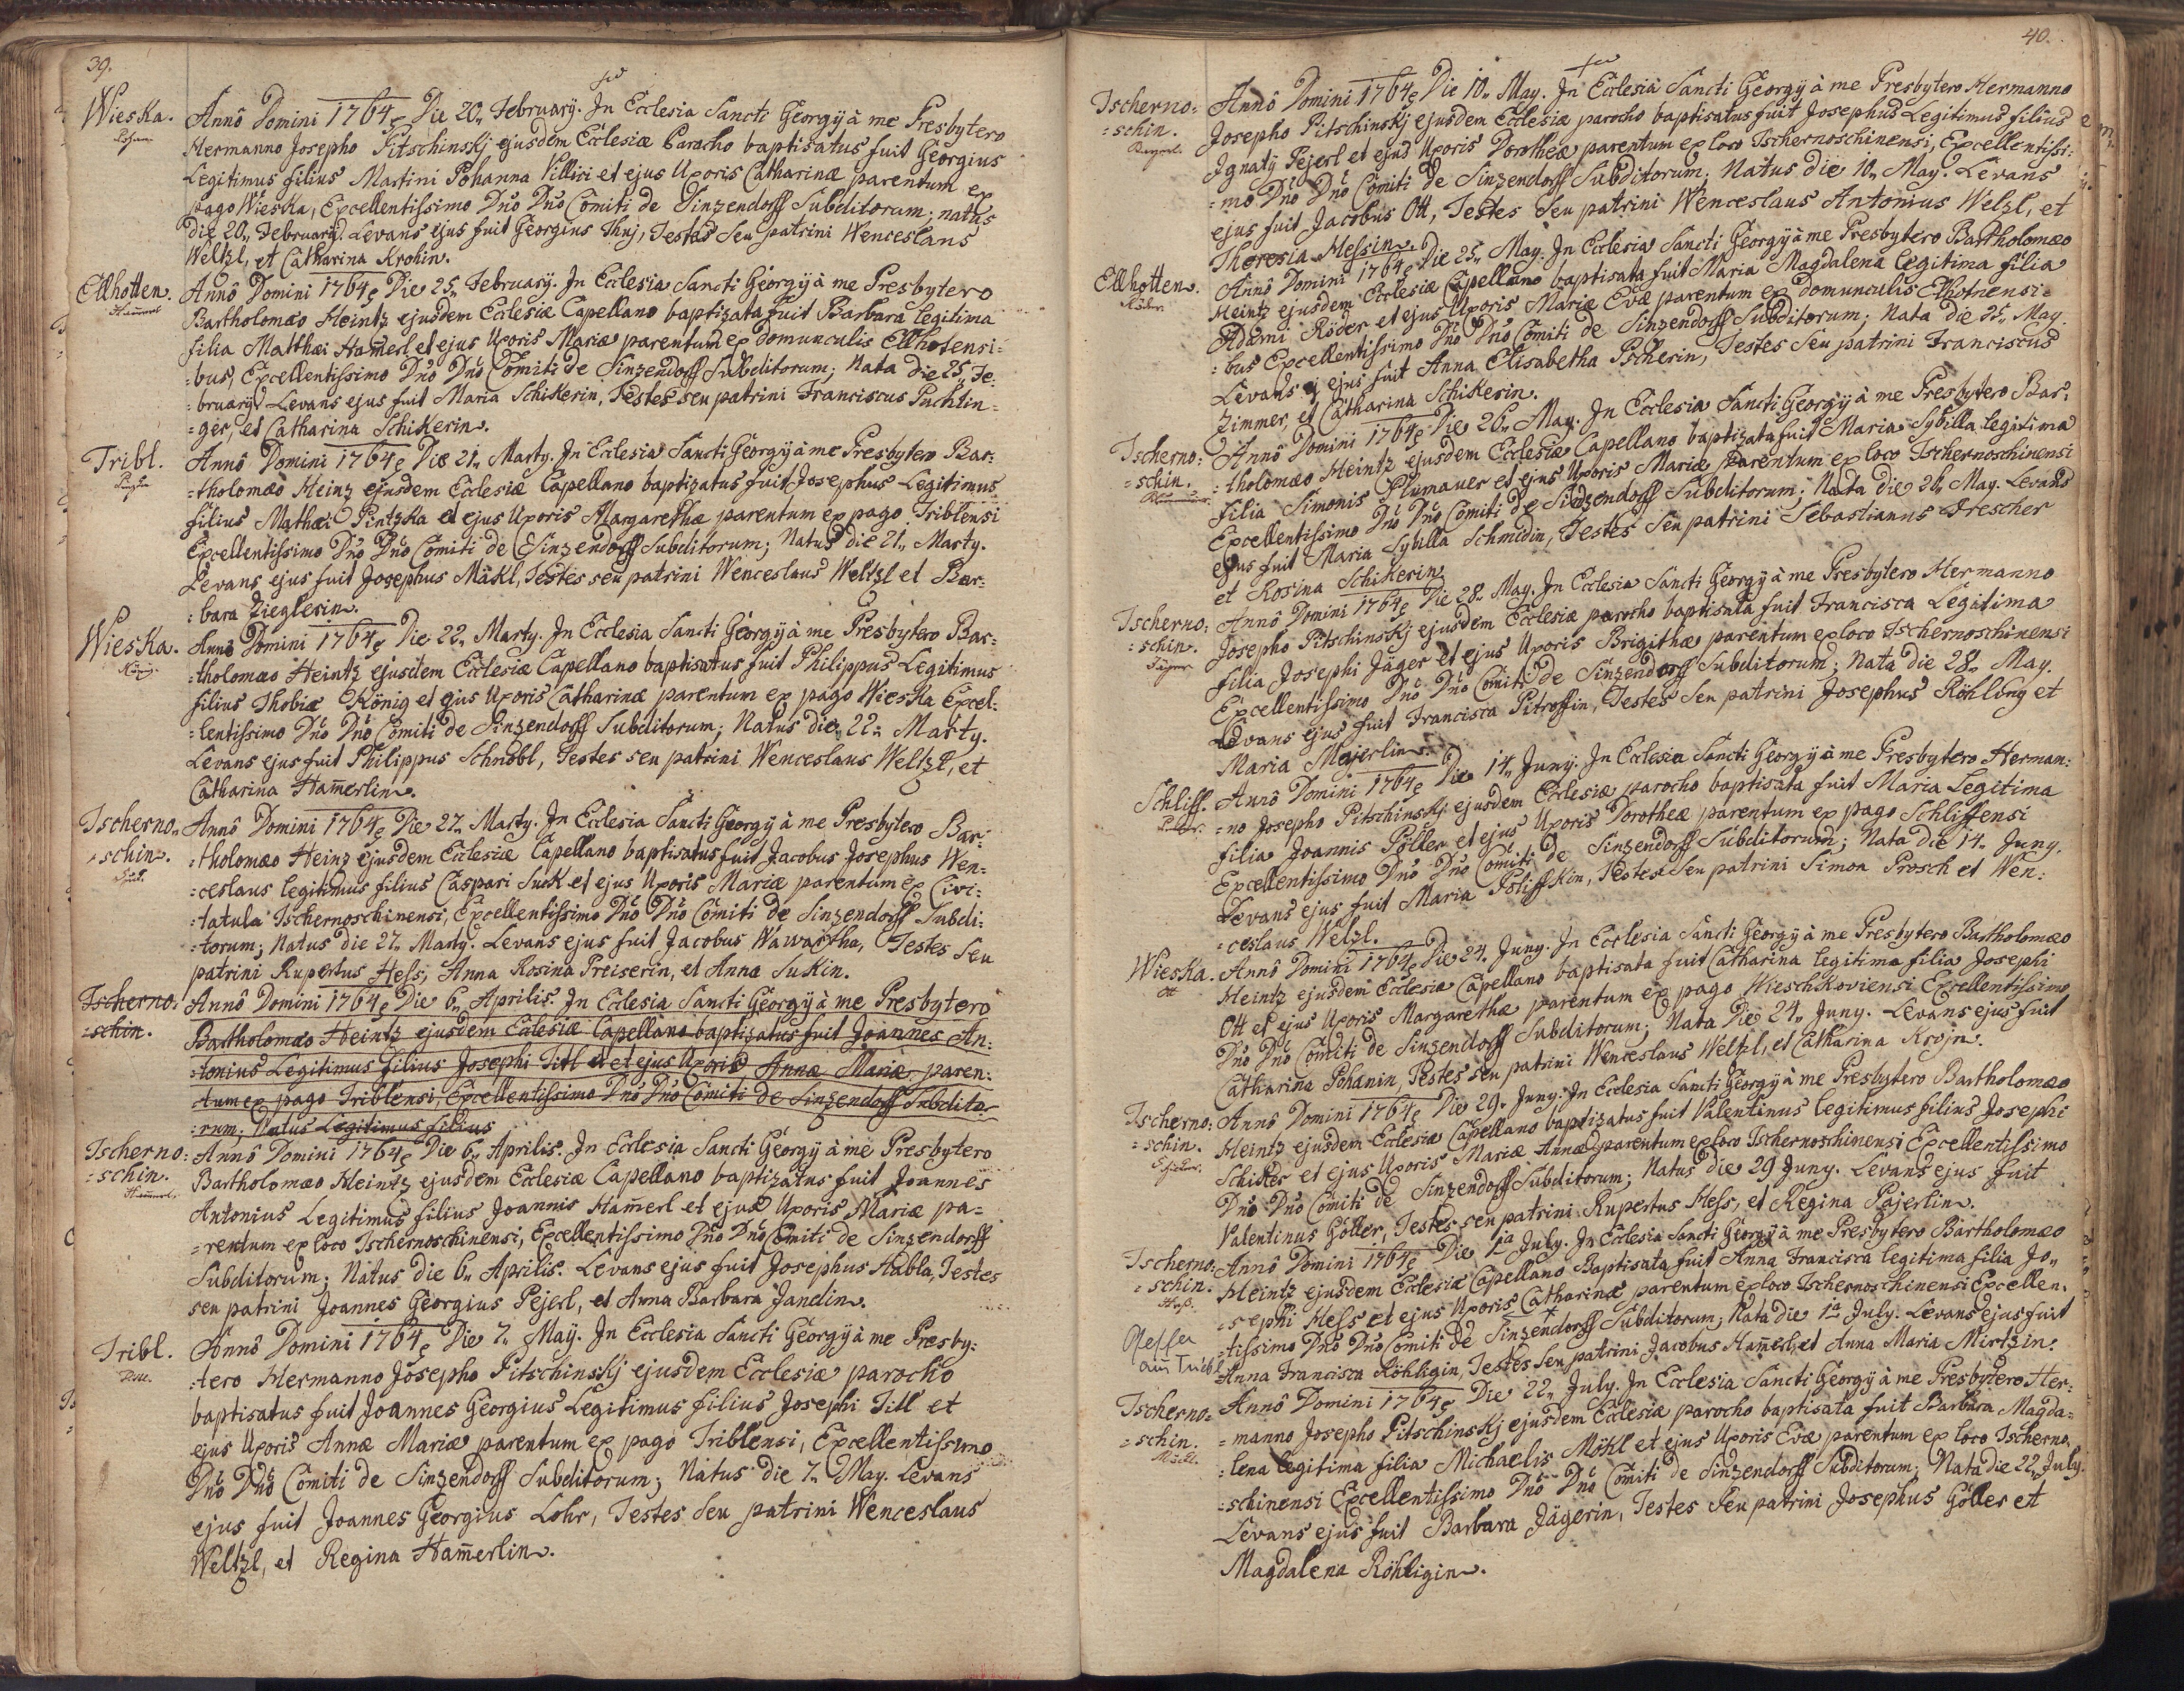 39.
Wieska.
Anno Domini 1764 Die 20. February. In Ecclesia Sancti Georgÿ à me Presbytero
Hermanno Josepho Pitschinskj ejusdem Ecclesiæ Parocho baptisatus fuit Georgius
Legitimus filius Martini Pohanna Villici et ejus Uxoris Catharinæ parentum ex
pago Wieska, Excellentissimo Dño Dño Comiti de Sinzendorff Subditorum; natus
die 20. February. Levans ejus fuit Georgius Thuj, Testes Seu patrini Wenceslaus
Weltzl, et Catharina Krohin.
Ellhotten.
Ham̄erl
Anno Domini 1764 Die 25. February. In Ecclesia Sancti Georgÿ à me Presbytero
Bartholomæo Heintz ejusdem Ecclesiæ Capellano baptizata fuit Barbara legitima
filia Matthæi Ham̄erl et ejus Uxoris Mariæ parentum ex domunculis Ellhotensi=
=bus, Excellentissimo Dño Dño Comiti de Sinzendorff Subditorum; Nata die 25 Fe:
=bruary. Levans ejus fuit Maria Schikerin, Testes seu patrini Franciscus Puchtin=
=ger, et Catharina Schikerin.
Tribl.
Anno Domini 1764 Die 21. Marty. In Ecclesia Sancti Georgÿ à me Presbytero Bar:
=tholomæo Heinz ejusdem Ecclesiæ Capellano baptizatus fuit Josephus Legitimus
filius Mathæi Pintzka et ejus Uxoris Margarethæ parentum ex pago Triblensi
Excellentissimo Dño Dño Comiti de Sinzendorff Subditorum; Natus die 21. Marty.
Levans ejus fuit Josephus Mäkl, Testes seu patrini Wenceslaus Weltzl et Bar:
:bara Zieglerin.
Wieska.
König.
Anno Domini 1764 Die 22. Marty. In Ecclesia Sancti Georgÿ à me Presbytero Bar:
=tholomæo Heintz ejusdem Ecclesiæ Capellano baptisatus fuit Philippus Legitimus
filius Thobiæ König et ejus Uxoris Catharinæ parentum ex pago Wieska Excel:
=lentissimo Dño Dño Comiti de Sinzendorff Subditorum; Natus die 22. Marty.
Levans ejus fuit Philippus Schnöbl, Testes seu patrini Wenceslaus Weltzl, et
Catharina Ham̄erlin.
Tscherno=
=schin.
Suk.
Anno Domini 1764 Die 27. Marty. In Ecclesia Sancti Georgÿ à me Presbytero Bar:
=tholomæo Heinz ejusdem Ecclesiæ Capellano baptisatus fuit Jacobus Josephus Wen=
=ceslaus legitimus filius Caspari Suck et ejus Uxoris Mariæ parentum ex Civi:
=tatula Tschernoschinensi, Excellentissimo Dño Dño Comiti de Sinzendorff Subdi:
=torum; Natus die 27. Marty. Levans ejus fuit Jacobus Wawartha, Testes Seu
patrini Rupertus Hess, Anna Rosina Preiserin, et Anna Sukin.
Tscherno:
=schin.
Anno Domini 1764 Die 6. Aprilis. In Ecclesia Sancti Georgÿ à me Presbytero
Bartholomæo Heintz ejusdem Ecclesiæ Capellano baptizatus fuit Joannes An:
=tonius Legitimus filius Josephi Titl et ejus Uxoris Annæ Mariæ paren:
tum ex pago Triblensi, Excellentissimo Dño Dño Comiti de Sinzendorff Subdito=
:rum; Natus Legitimus filius
Tscherno:
=schin.
Ham̄erl.
Anno Domini 1764 Die 6. Aprilis. In Ecclesia Sancti Georgÿ à me Presbytero
Bartholomæo Heintz ejusdem Ecclesiæ Capellano baptizatus fuit Joannes
Antonius Legitimus filius Joannis Ham̄erl et ejus Uxoris Mariæ pa=
=rentum ex loco Tschernoschinensi, Excellentissimo Dño Dño Comiti de Sinzendorff
Subditorum; Natus die 6. Aprilis. Levans ejus fuit Josephus Habla, Testes
seu patrini Joannes Georgius Pejerl, et Anna Barbara Jandin.
Tribl.
Anno Domini 1764 Die 7. Maÿ. In Ecclesia Sancti Georgÿ à me Presby:
=tero Hermanno Josepho Pitschinskj ejusdem Ecclesiæ parocho
baptisatus fuit Joannes Georgius Legitimus filius Josephi Titl et
ejus Uxoris Annæ Mariæ parentum ex pago Triblensi, Excellentissimo
Dño Dño Comiti de Sinzendorff Subditorum; Natus die 7. May. Levans
ejus fuit Joannes Georgius Lohr, Testes Seu patrini Wenceslaus
Weltzl, et Regina Ham̄erlin.
40.
Tscherno:
=schin.
Anno Domini 1764 Die 10. May. In Ecclesia Sancti Georgÿ à me Presbytero Hermanno
Josepho Pitschinskj ejusdem Ecclesiæ parocho baptisatus fuit Josephus Legitimus filius
Ignatÿ Pejerl et ejus Uxoris Dorotheæ parentum ex loco Tschernoschinensi, Excellentissi:
=mo Dño Dño Comiti de Sinzendorff Subditorum; Natus die 10. May. Levans
ejus fuit Jacobus Ott, Testes Seu patrini Wenceslaus Antonius Welzl, et
Theresia Hessin.
Ellhotten.
Anno Domini 1764 Die 25. May. In Ecclesia Sancti Georgÿ à me Presbytero Bartholomæo
Heintz ejusdem Ecclesiæ Capellano baptisata fuit Maria Magdalena legitima filia
Adami Röder et ejus Uxoris Mariæ Evæ parentum ex domunculis Elhotnensi=
=bus Excellentissimo Dño Dño Comiti de Sinzendorff Subditorum; Nata die 25. May.
Levans ejus fuit Anna Elisabetha Pscherin, Testes Seu patrini Franciscus
Zimmer, et Catharina Schikerin.
Tscherno:
=schin.
Anno Domini 1764 Die 26. May. In Ecclesia Sancti Georgÿ à me Presbytero Bar:
:tholomæo Heintz ejusdem Ecclesiæ Capellano baptizata fuit Maria Sybilla legitima
filia Simonis Plumauer et ejus Uxoris Mariæ Parentum ex loco Tschernoschinensi
Excellentissimo Dño Dño Comiti de Sinzendorff Subditorum; Nata die 26. May. Levans
ejus fuit Maria Sybilla Schmidin, Testes Seu patrini Sebastianus Drescher
et Rosina Schikerin
Tscherno:
:schin.
Jäger
Anno Domini 1764 Die 28. May. In Ecclesia Sancti Georgÿ à me Presbytero Hermanno
Josepho Pitschinskj ejusdem Ecclesiæ parocho baptisata fuit Francisca Legitima
filia Josephi Jäger et ejus Uxoris Brigithæ parentum ex loco Tschernoschinensi
Excellentissimo Dño Dño Comiti de Sinzendorff Subditorum; Nata die 28. May.
Levans ejus fuit Francisca Pitroffin, Testes Seu patrini Josephus Röhling et
Maria Majerlin.
Schliff.
Anno Domini 1764 Die 14. Juny. In Ecclesia Sancti Georgÿ à me Presbytero Herman:
=no Josepho Pitschinskj ejusdem Ecclesiæ parocho baptisata fuit Maria Legitima
filia Joannis Pöller et ejus Uxoris Dorotheæ parentum ex pago Schliffensi
Excellentissimo Dño Dño Comiti de Sinzendorff Subditorum; Nata die 14. Juny.
Levans ejus fuit Maria Poliffkin, Testes Seu patrini Simon Prosch et Wen:
=ceslaus Welzl.
Wieska.
Ott
Anno Domini 1764 Die 24. Juny. In Ecclesia Sancti Georgÿ à me Presbytero Bartholomæo
Heintz ejusdem Ecclesiæ Capellano baptisata fuit Catharina legitima filia Josephi
Ott et ejus Uxoris Margarethæ parentum ex pago Wieschkoviensi Excellentissimo
Dño Dño Comiti de Sinzendorff Subditorum; Nata Die 24. Juny. Levans ejus fuit
Catharina Pohanin, Testes seu patrini Wenceslaus Weltzl, et Catharina Krojn.
Tscherno:
=schin.
Anno Domini 1764 Die 29. Juny. In Ecclesia Sancti Georgÿ à me Presbytero Bartholomæo
Heintz ejusdem Ecclesiæ Capellano baptizatus fuit Valentinus legitimus filius Josephi
Schikter et ejus Uxoris Mariæ Annæ parentum ex loco Tschernoschinensi Excellentissimo
Dño Dño Comiti de Sinzendorff Subditorum; Natus die 29 Juny. Levans ejus fuit
Valentinus Göller, Testes seu patrini Rupertus Hess, et Regina Pajerlin.
Tscherno:
=schin.
Heß.
Anno Domini 1764 Die 1ja July. In Ecclesia Sancti Georgÿ à me Presbytero Bartholomæo
Heintz ejusdem Ecclesiæ Capellano Baptisata fuit Anna Francisca legitima filia Jo=
=sephi Hess et ejus Uxoris Catharinæ parentum ex loco Tschernoschinensi Excellen:
=tissimo Dño Dño Comiti de Sinzendorff Subditorum; Nata die 1ja July. Levans ejus fuit
Anna Francisca Röhligin, Testes Seu patrini Jacobus Ham̄erl, et Anna Maria Mirtzin.
Tscherno=
=schin.
Anno Domini 1764 Die 22. July. In Ecclesia Sancti Georgÿ à me Presbytero Her:
=manno Josepho Pitschinskj ejusdem Ecclesiæ parocho baptisata fuit Barbara Magda=
:lena legitima filia Michaelis Möhl et ejus Uxoris Evæ parentum ex loco Tscherno
=schinensi Excellentissimo Dño Dño Comiti de Sinzendorff Subditorum; Nata die 22. July.
Levans ejus fuit Barbara Jägerin, Testes Seu patrini Josephus Göller et
Magdalena Röhligin.